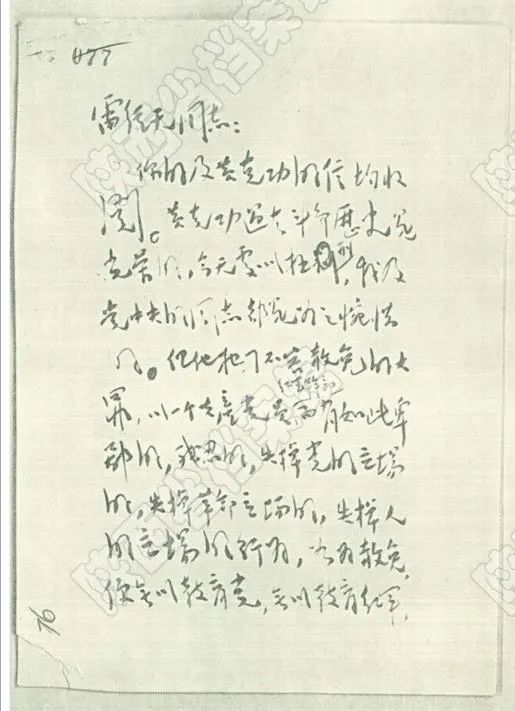 077
雷经天同志：
你的及黄克功的信均收
閱。黄克功过去斗争歷史是
光荣的，今天处以极刑，我及
党中央的同志都是为之惋惜
的。但他犯了不容赦免的大
罪，以一个共產党员红军干部而有如此卑
鄙的，残忍的，失掉党的立场
的，失掉革命立场的，失掉人
的立场的行为，如为赦免，
便无以教育党，无以教育红军，
76
陕西省档案馆